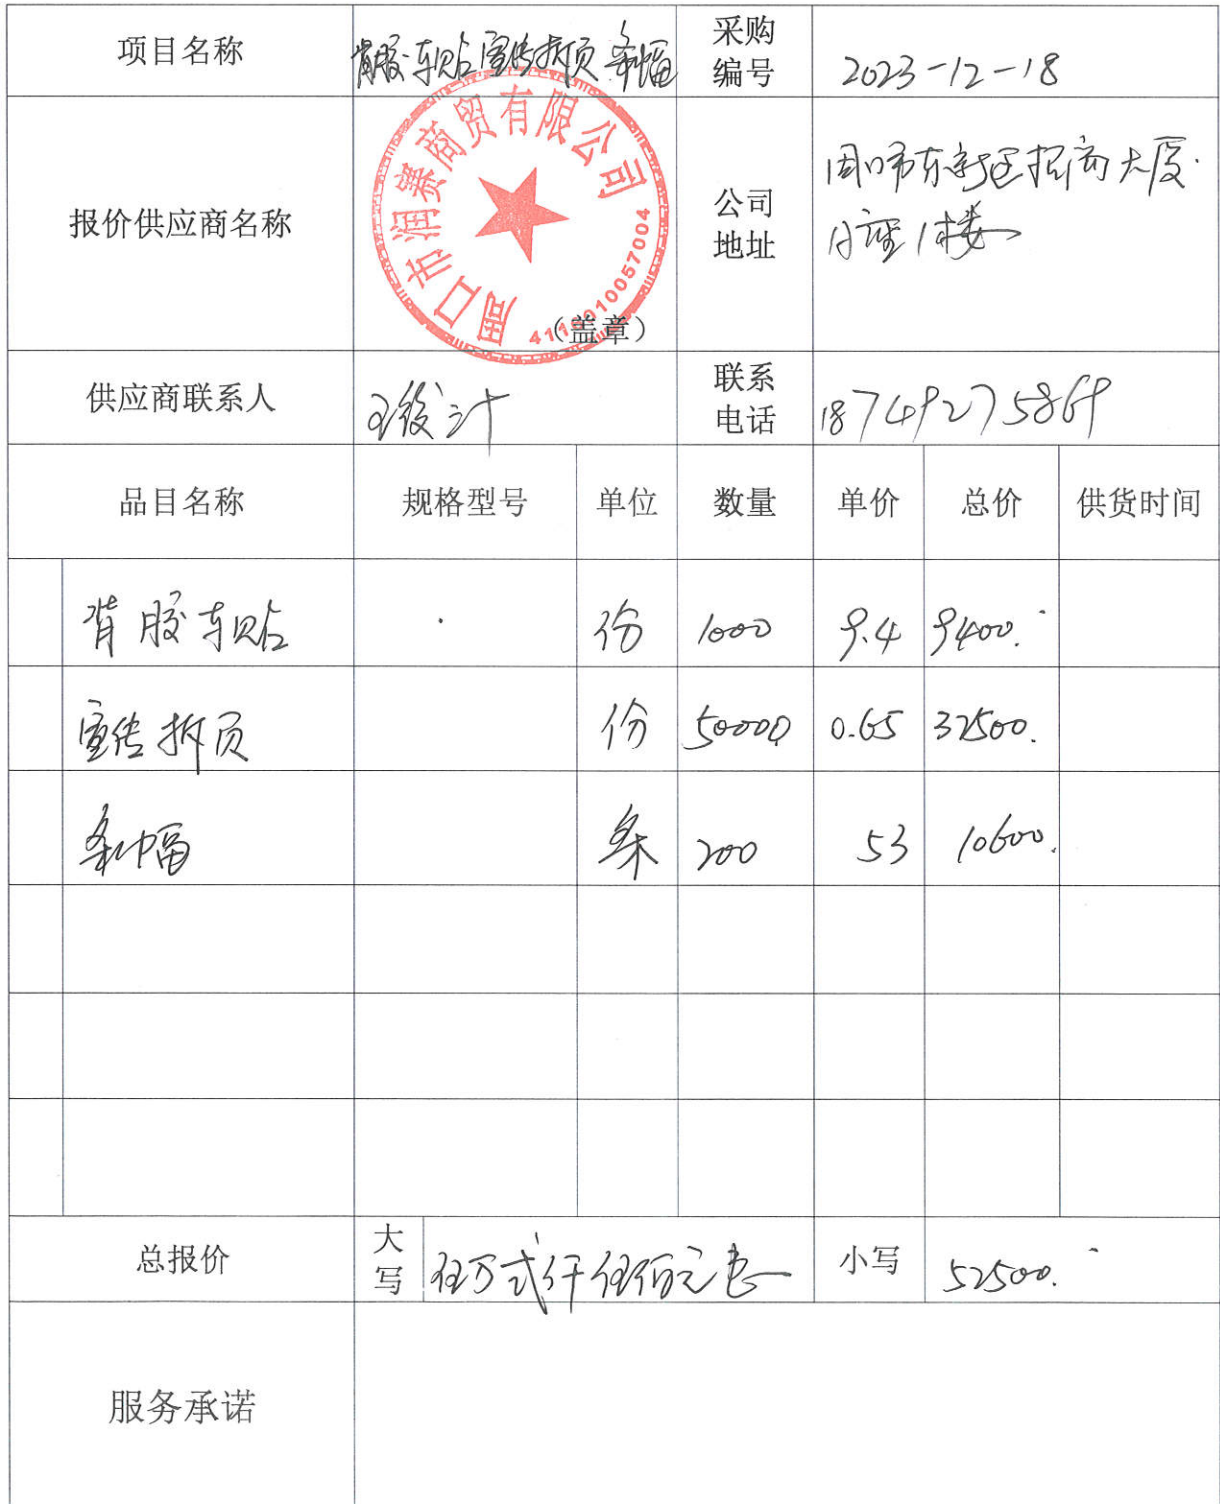 项目名称 背胶车贴宣传折页 条幅 采购编号 2023-12-18
周口市润赛商贸有限公司
报价供应商名称 （盖章） 公司地址 周口市东新区招商大厦
座1楼
供应商联系人 联系电话 18749275869
品目名称 规格型号 单位 数量 单价 总价 供货时间
背胶车贴 份 1000 9.4 9400.
宣传折页 份 50000 0.65 32500.
条幅 条 200 53 10600.
总报价 大写 伍万弍仟伍佰元整 小写 52500.
服务承诺